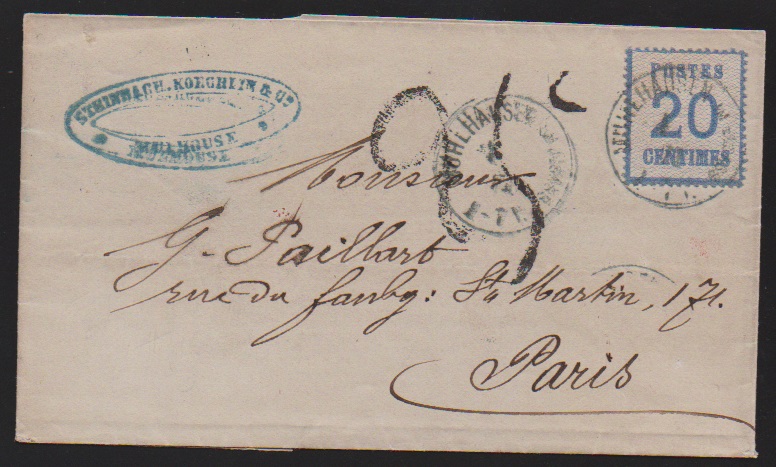 STEINBACH, KOECHLIN & Cº
MULHOUSE
POSTES
20
CENTIMES
MÜLHAUSEN
MÜHLHAUSEN IM ELSASS
6-7 V.
25
Monsieur
G. Paillart
rue du faubg: St Martin, 171.
Paris